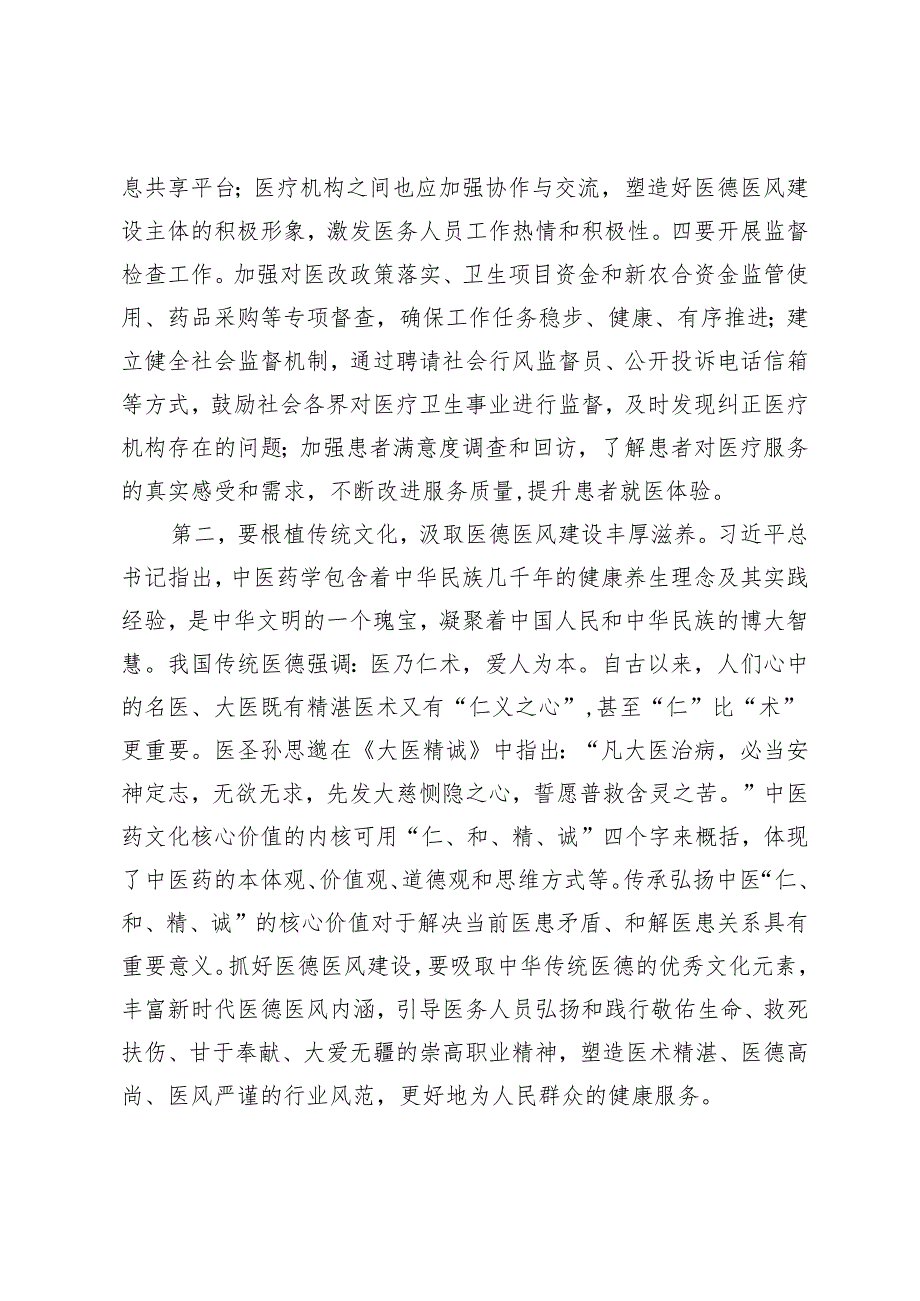 息共享平台；医疗机构之间也应加强协作与交流，塑造好医德医风建
设主体的积极形象，激发医务人员工作热情和积极性。四要开展监督
检查工作。加强对医改政策落实、卫生项目资金和新农合资金监管使
用、药品采购等专项督查，确保工作任务稳步、健康、有序推进；建
立健全社会监督机制，通过聘请社会行风监督员、公开投诉电话信箱
等方式，鼓励社会各界对医疗卫生事业进行监督，及时发现纠正医疗
机构存在的问题；加强患者满意度调查和回访，了解患者对医疗服务
的真实感受和需求，不断改进服务质量,提升患者就医体验。
第二，要根植传统文化，汲取医德医风建设丰厚滋养。习近平总
书记指出，中医药学包含着中华民族几千年的健康养生理念及其实践
经验，是中华文明的一个瑰宝，凝聚着中国人民和中华民族的博大智
慧。我国传统医德强调：医乃仁术，爱人为本。自古以来，人们心中
的名医、大医既有精湛医术又有“仁义之心”,甚至“仁”比“术”
更重要。医圣孙思邈在《大医精诚》中指出：“凡大医治病，必当安
神定志，无欲无求，先发大慈恻隐之心，誓愿普救含灵之苦。”中医
药文化核心价值的内核可用“仁、和、精、诚”四个字来概括，体现
了中医药的本体观、价值观、道德观和思维方式等。传承弘扬中医“仁、
和、精、诚”的核心价值对于解决当前医患矛盾、和解医患关系具有
重要意义。抓好医德医风建设，要吸取中华传统医德的优秀文化元素，
丰富新时代医德医风内涵，引导医务人员弘扬和践行敬佑生命、救死
扶伤、甘于奉献、大爱无疆的崇高职业精神，塑造医术精湛、医德高
尚、医风严谨的行业风范，更好地为人民群众的健康服务。